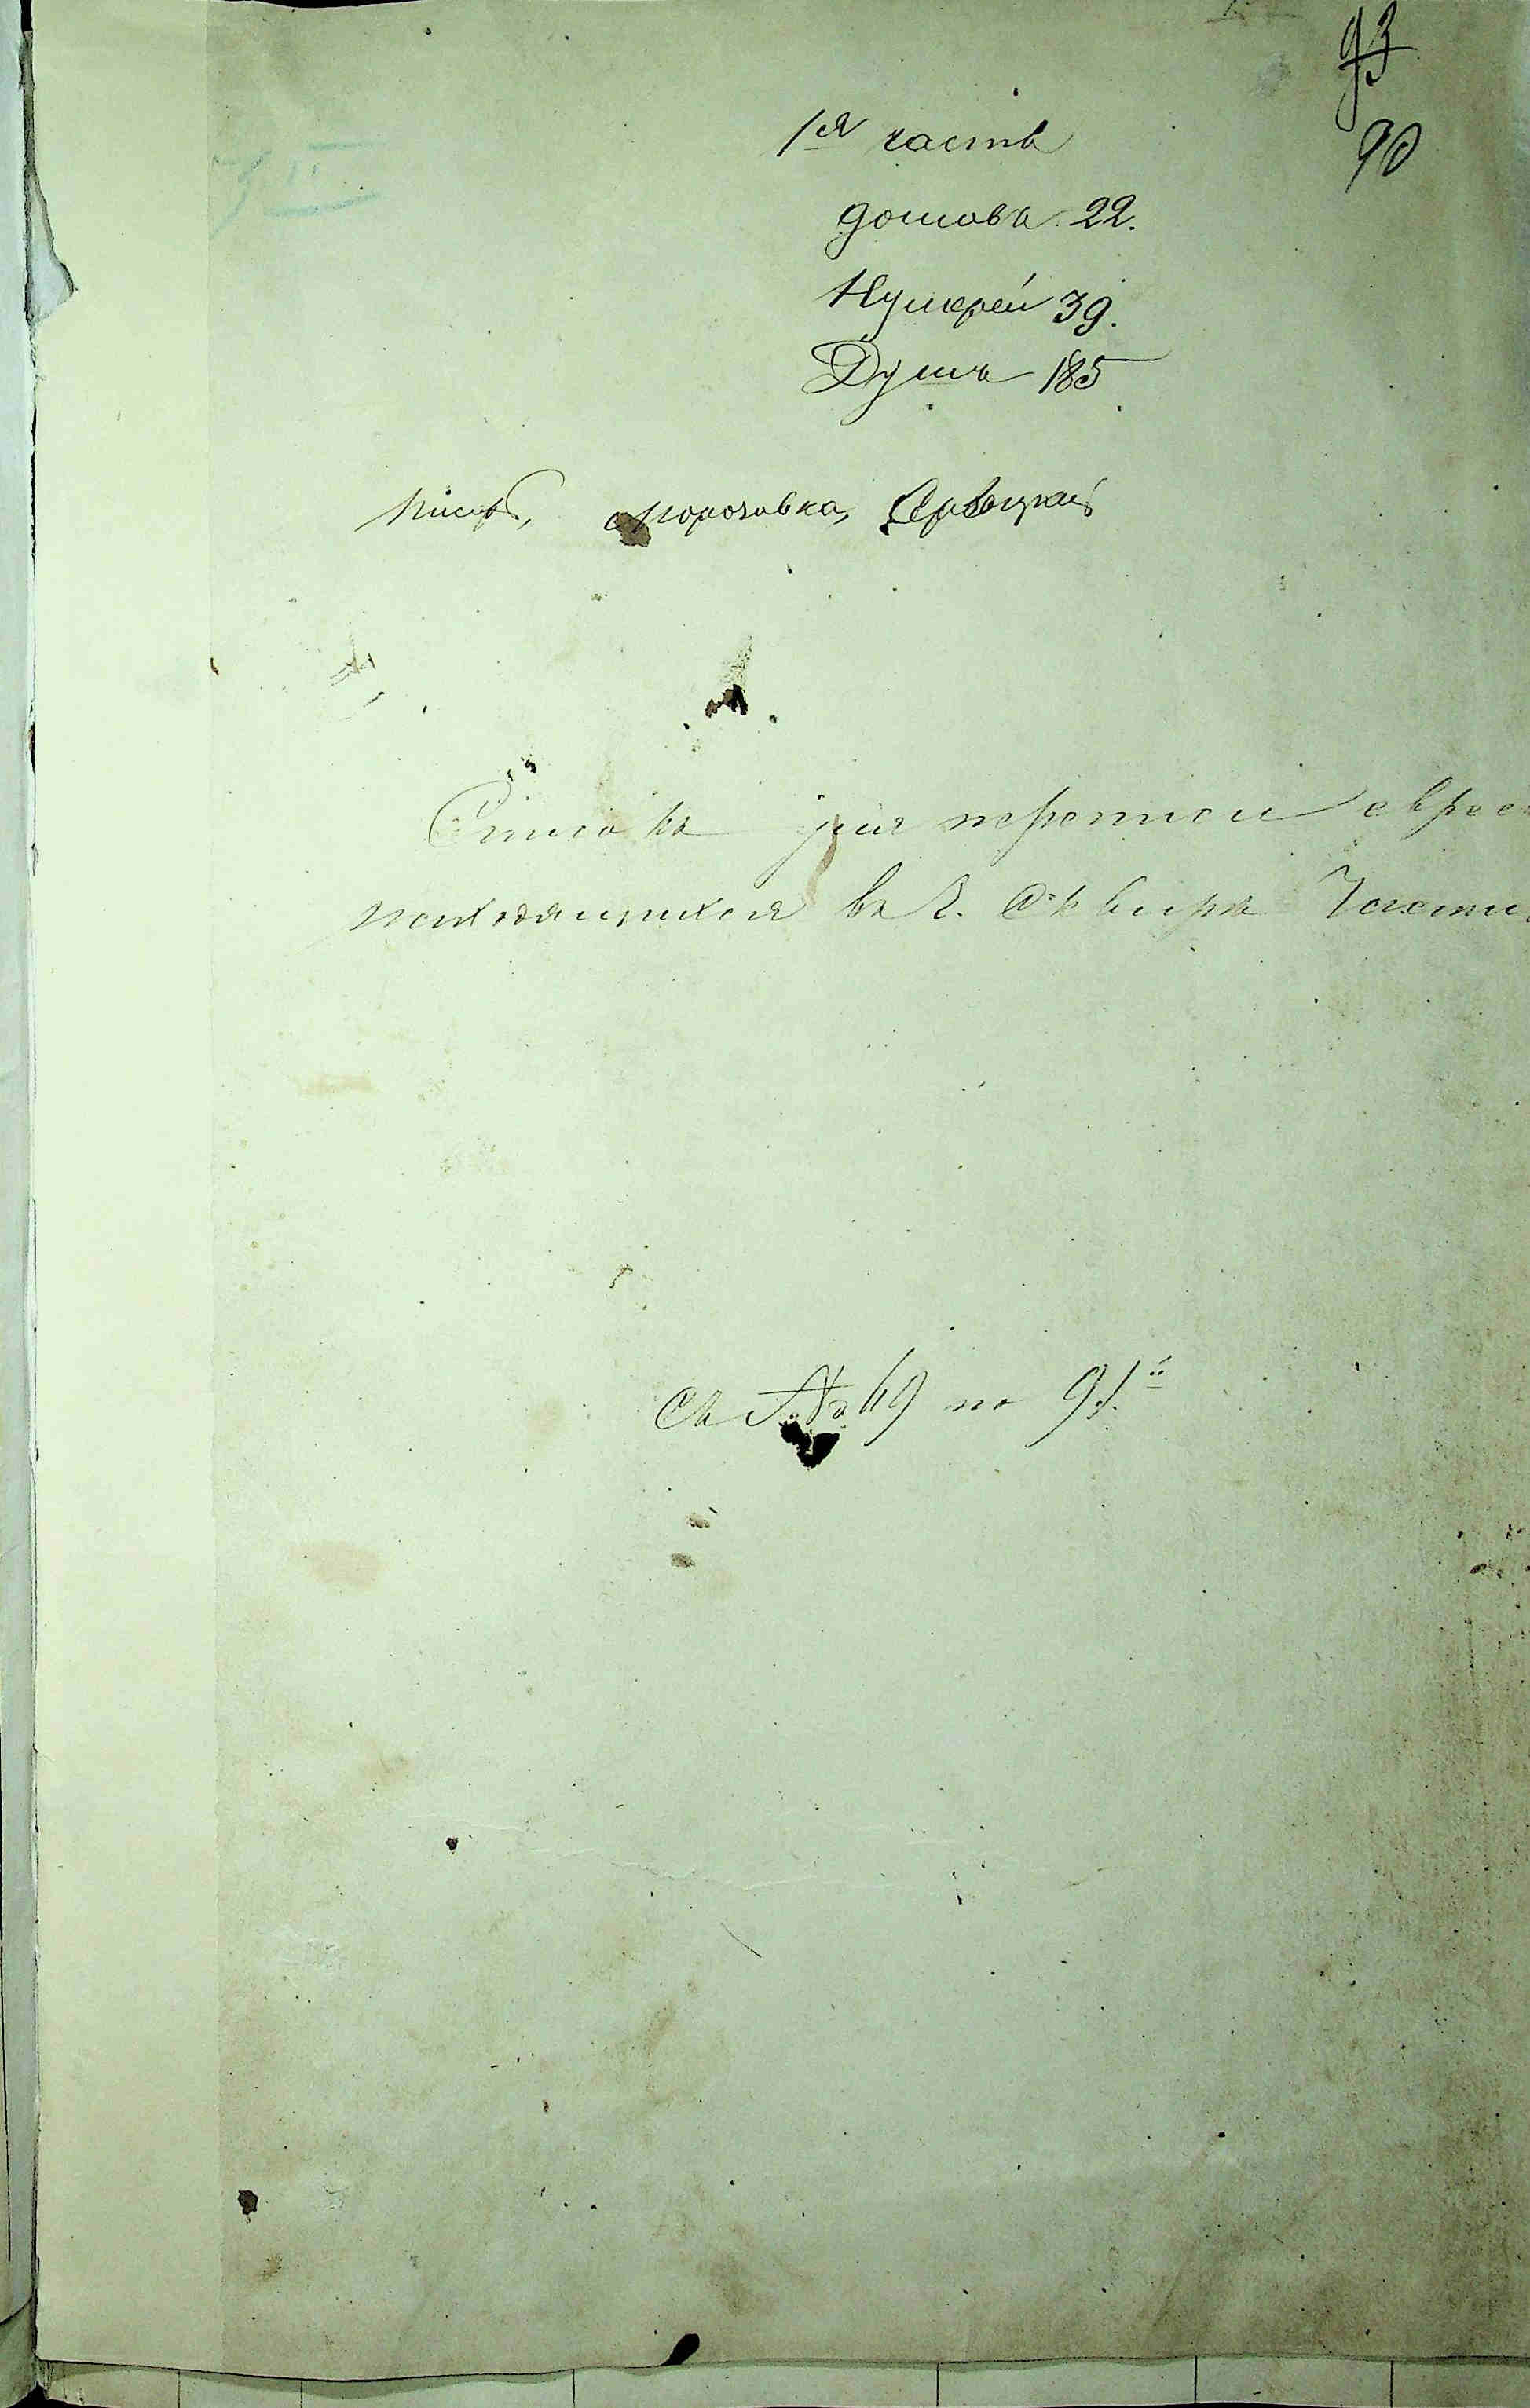 93
90
1ая часть
домовъ 22.
Нумерей 39.
Душъ 185
Морозовка,
Списокъ для переписи евре
находящихся въ г. Сквирѣ Части
Съ № 69 по 91й